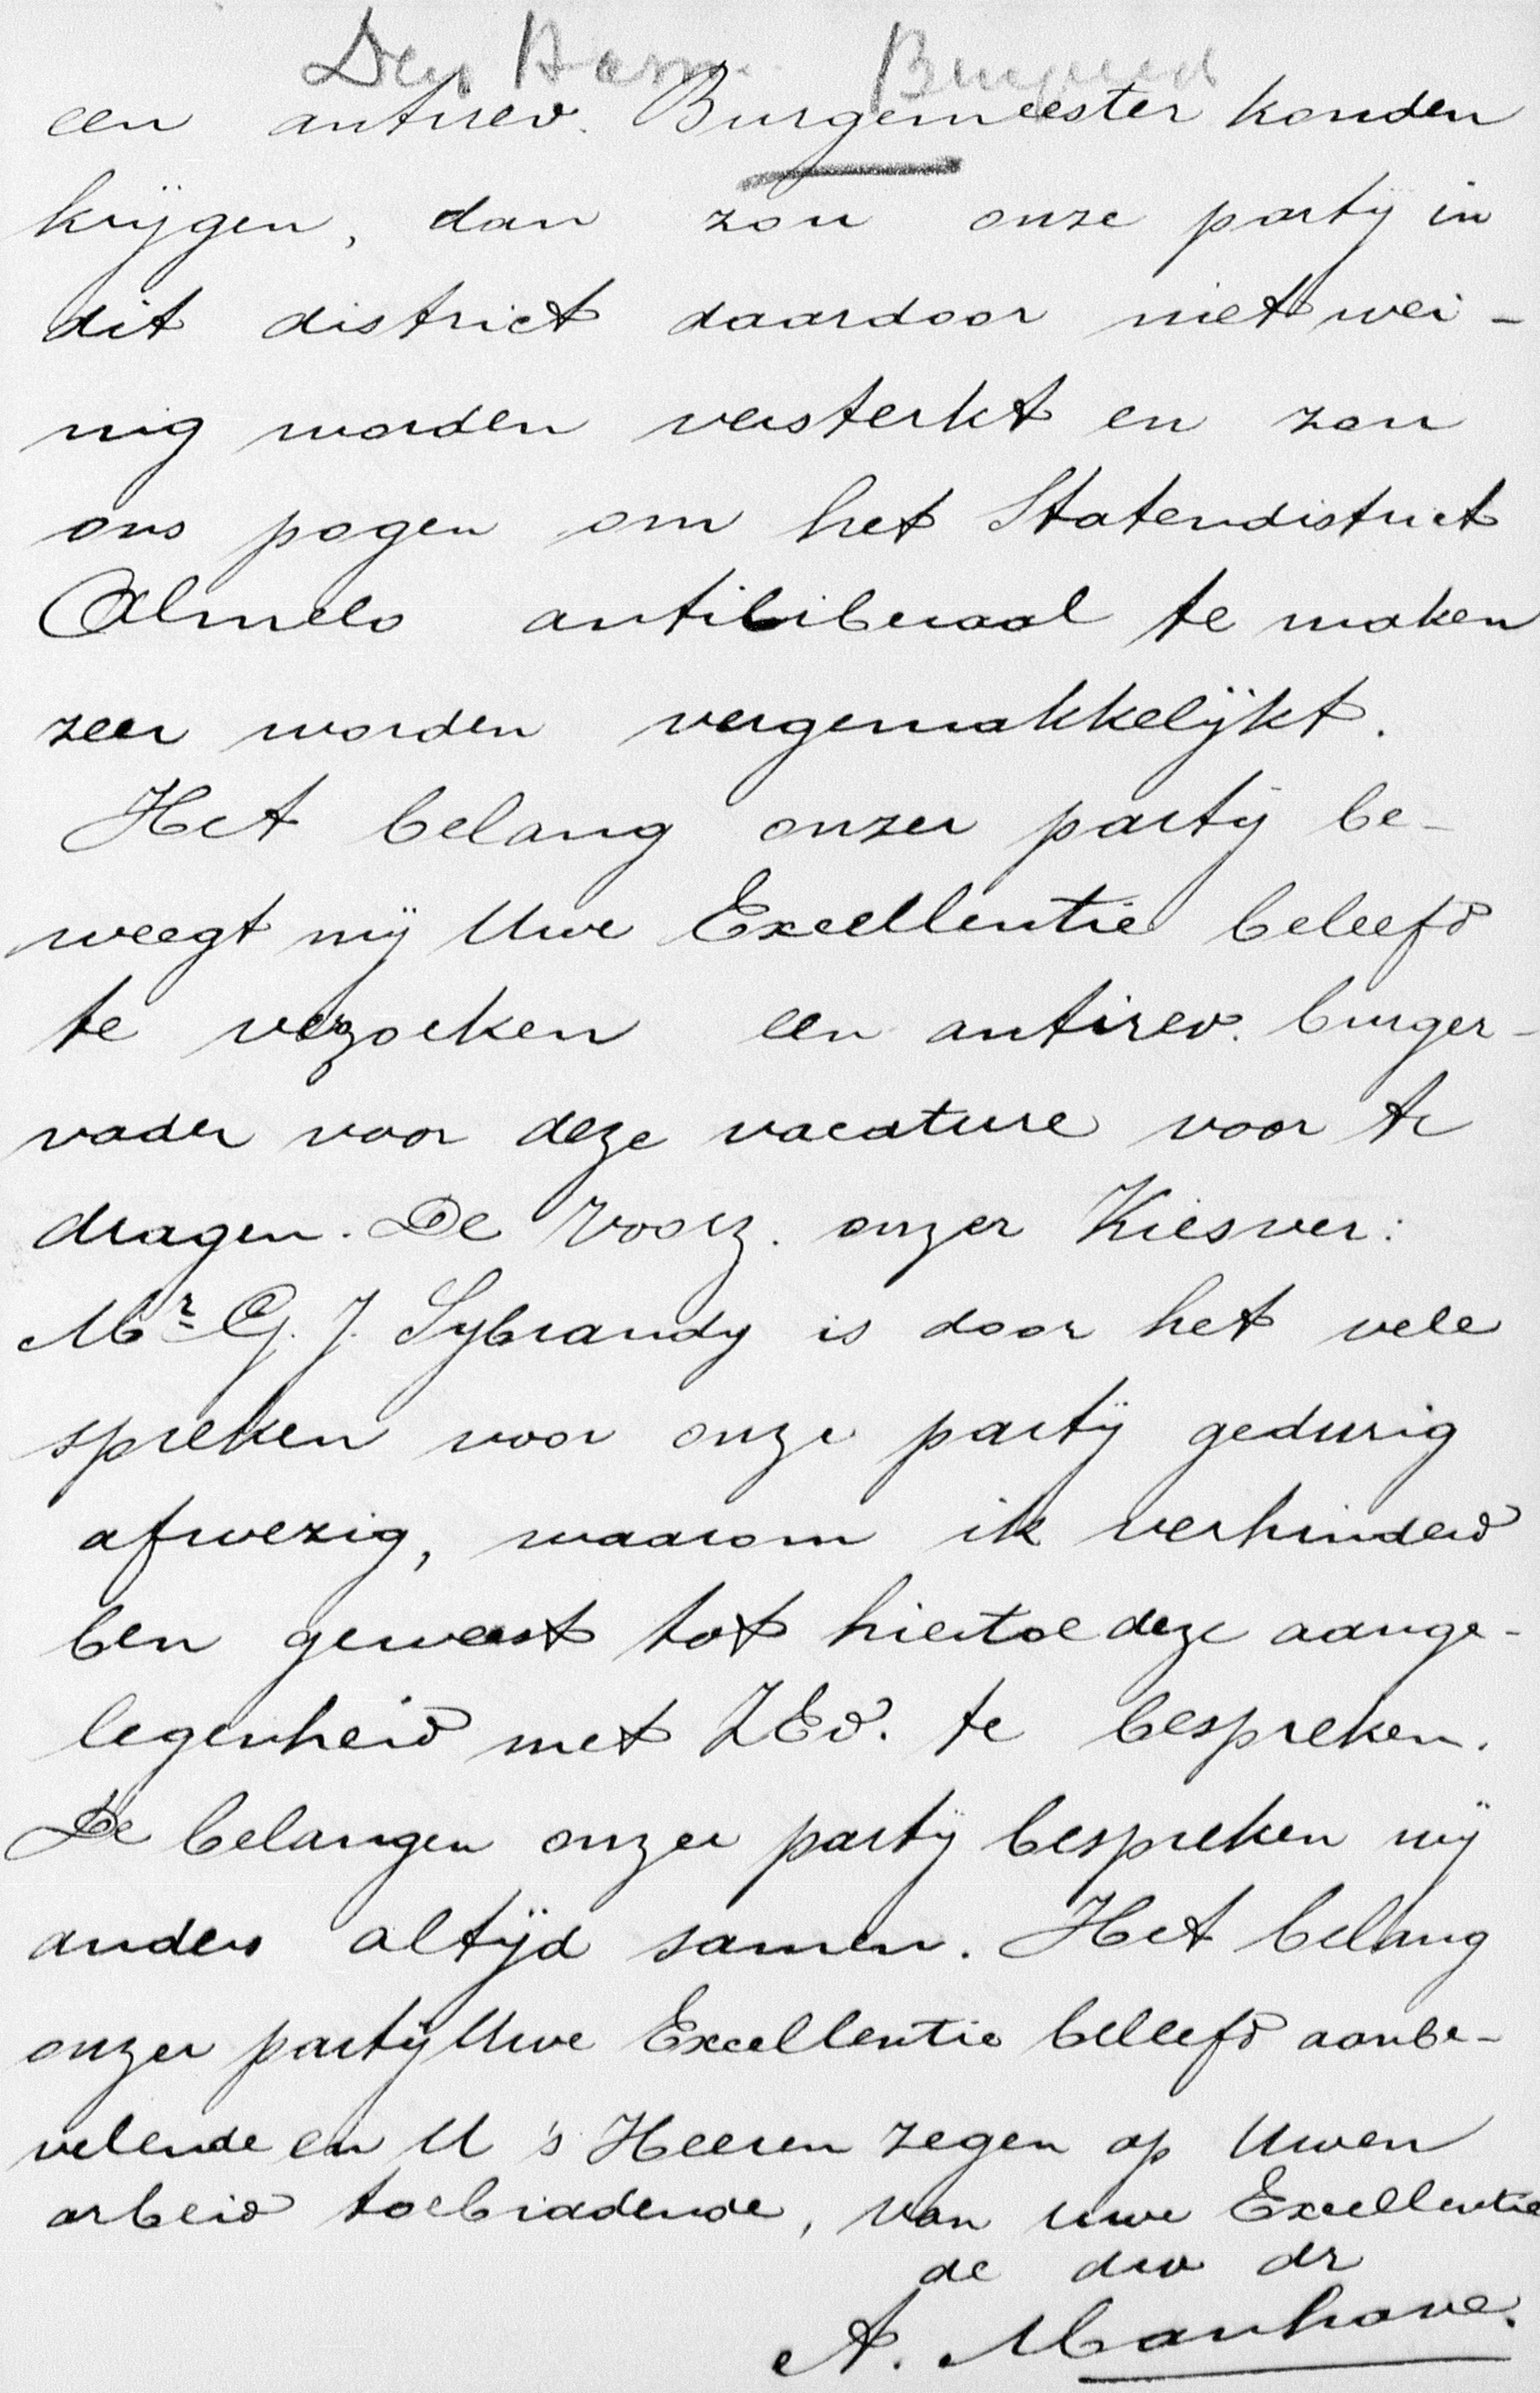 Den Ham
een antirev. Burgemeester konden
krijgen, dan zou onze partij in
dit district daardoor niet wei-
nig worden versterkt en zou
ons pogen om het Statendistrict
Almelo antiliberaal te maken
zeer worden vergemakkelijkt.
Het belang onzer partij be-
weegt mij Uwe Excellentie beleefd
te verzoeken een antirev. burger-
vader voor deze vacature voor te
dragen. De Voorz. onzer Kiesver:
Mr G. J. Sybrandy is door het vele
spreken voor onze partij gedurig
afwezig, waarom ik verhinderd
ben geweest tot hiertoe deze aange-
legenheid met ZEd. te bespreken.
De belangen onzer partij bespreken wij
anders altijd samen. Het belang
onzer partij Uwe Excellentie beleefd aanbe-
velende en U 's Heeren zegen op Uwen
arbeid toebiddende, van uwe Excellentie
de dw dr
A. Manhave.